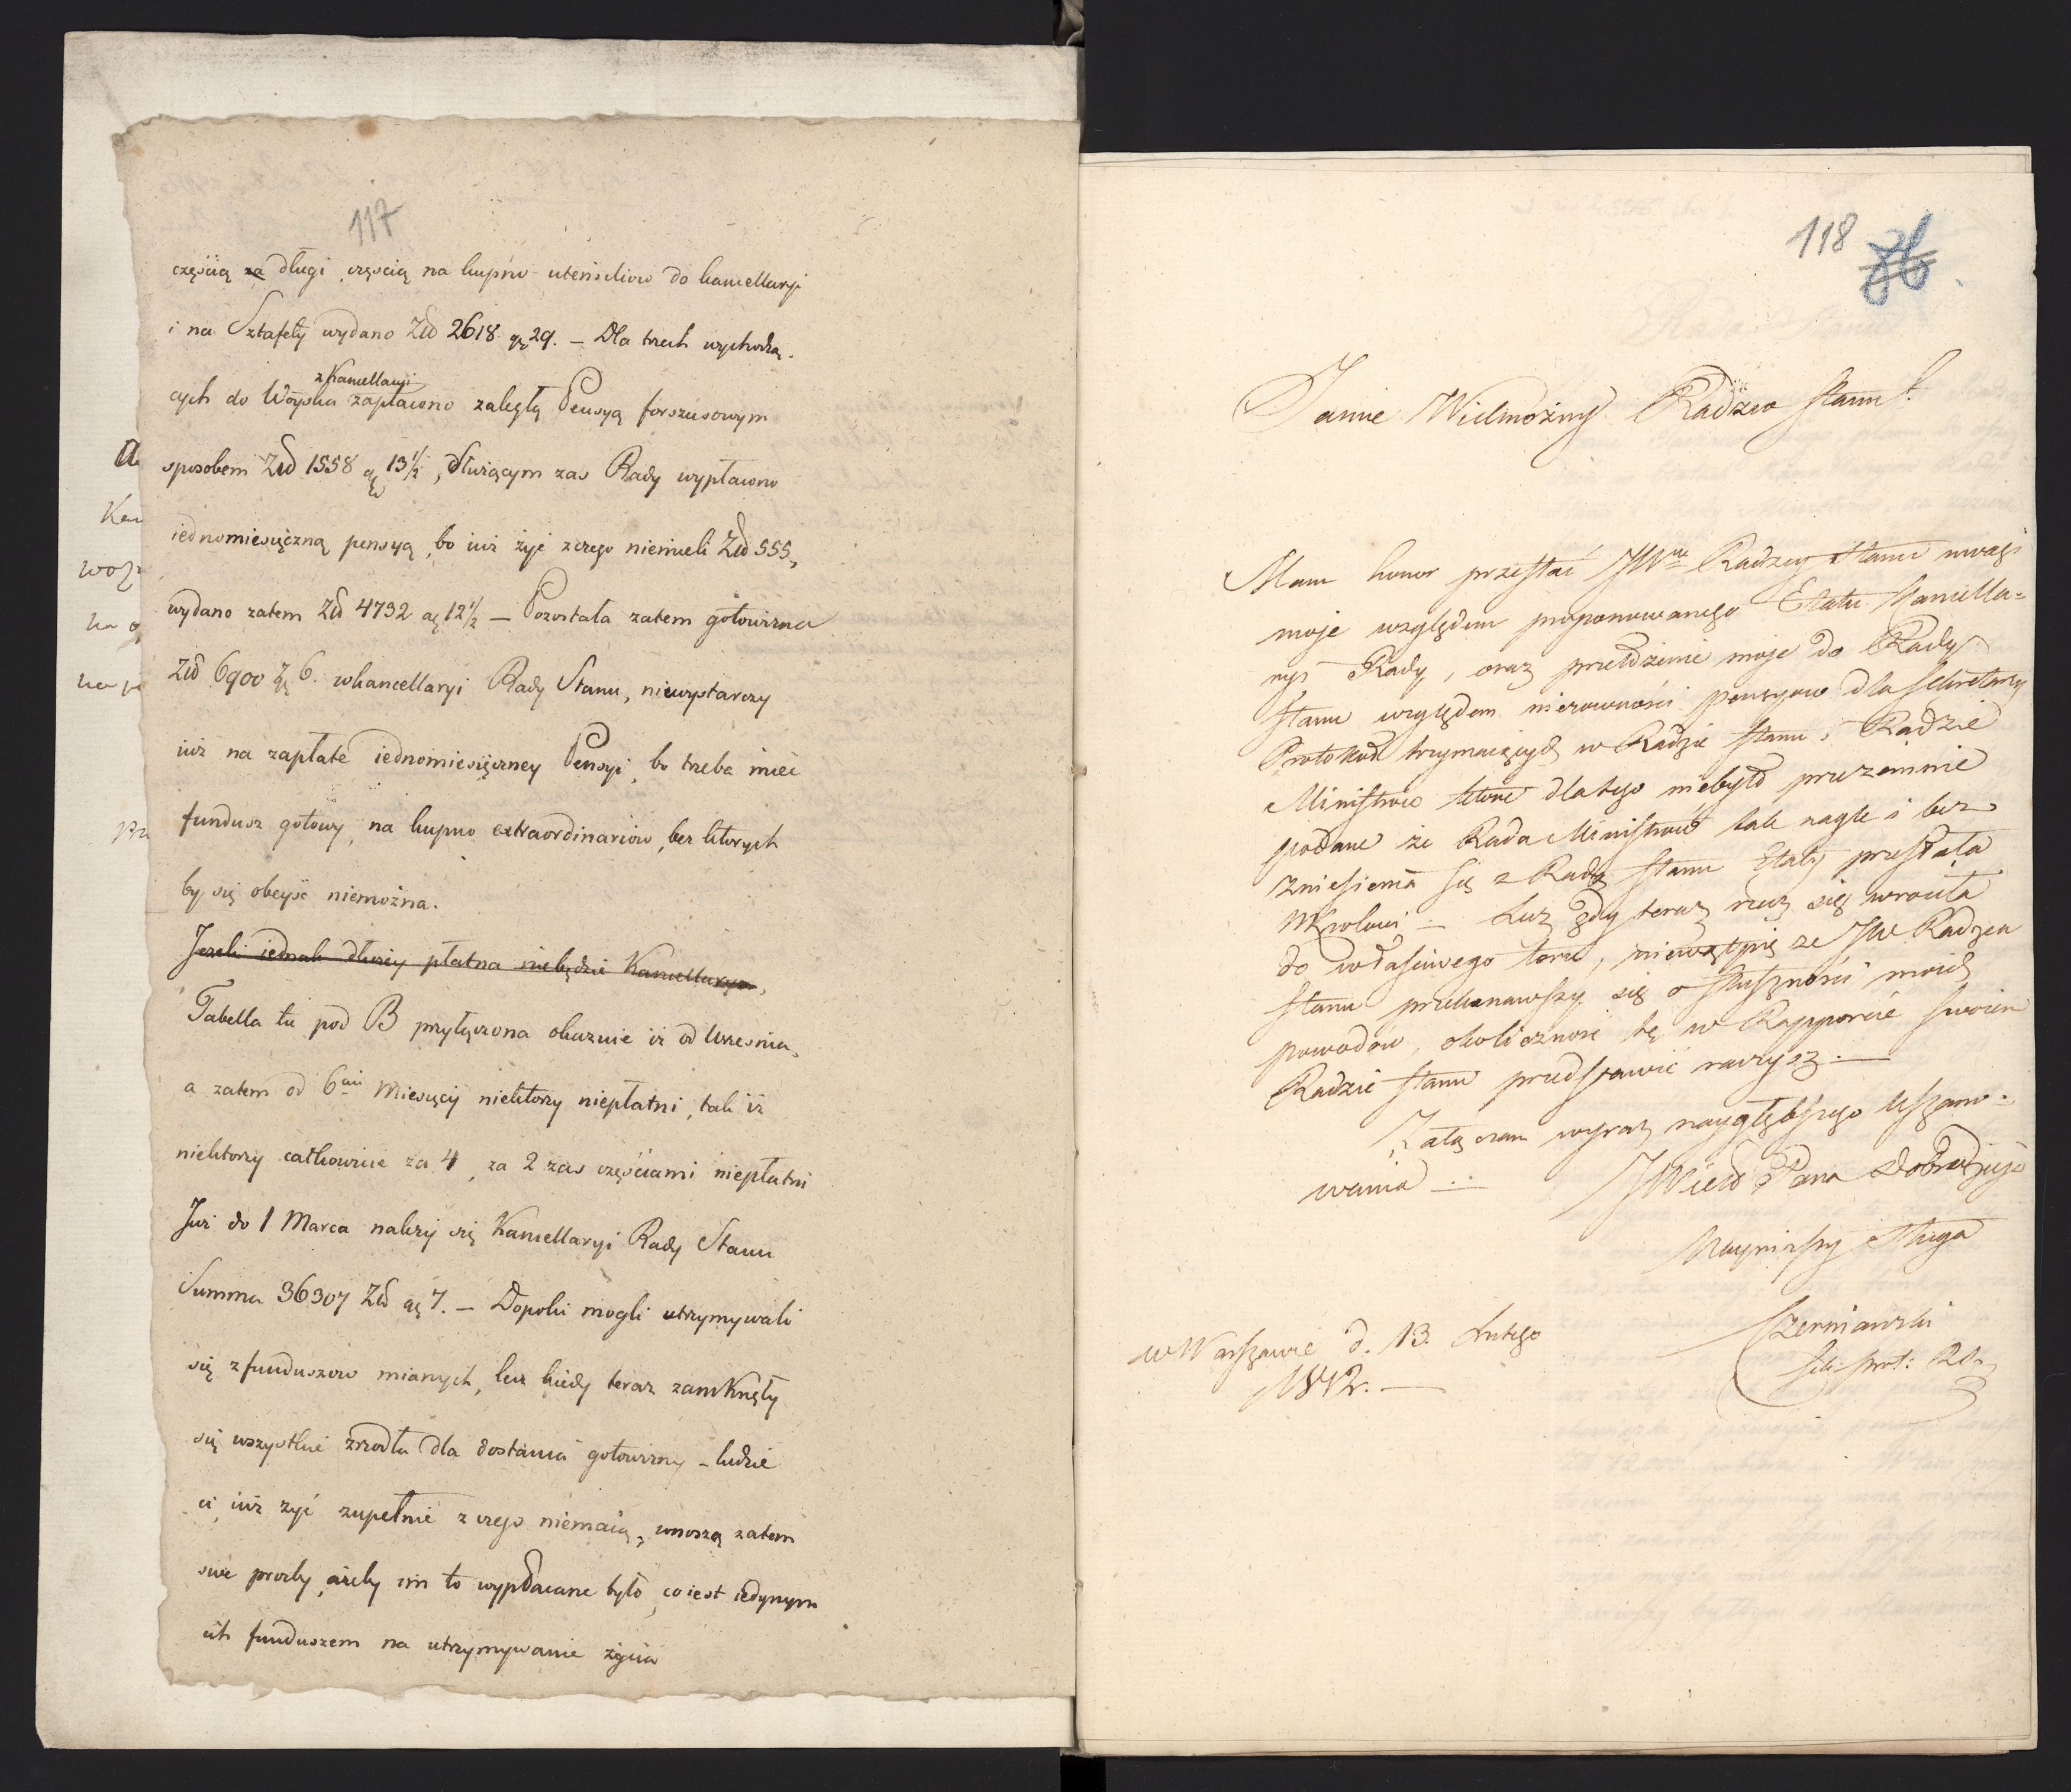 117
częścią za długi, częścią na kupno utensiliow do kancellaryi
i na Sztafety wydano Złł 2618 gr 29. – Dla trzech wychodzą-
z Kancellaryi
cych do Woyska zapłacono zaległą Pensyą forszusowym
sposobem Złł 1558 gr 13½, służącym zas Rady wypłacono
iednomiesięczną pensyą, bo iuż żyć z czego niemieli Złł 555,
wydano zatem Złł 4732 gr 12½ – Pozostała zatem gotowizna
Złł 6900 gr 6. w kancellaryi Rady Stanu, niewystarczy
iuż na zapłate iednomiesięczney Pensyi, bo trzeba mieć
fundusz gotowy, na kupno extraordinariow, bez ktorych
by się obeyść niemożna.
Jeżeli iednak dłużey płatna niebędzie Kancellarya,
Tabella tu pod B przyłączona okazuie iż od Wrzesnia,
a zatem od 6ciu Miesięcy niektorzy niepłatni, tak iż
niektorzy całkowicie za 4, za 2 zas częściami niepłatni
Już do 1 Marca należy się Kancellaryi Rady Stanu
Summa 36307 Złł gr 7. – Dopoki mogli utrzymywali
się z funduszow mianych, lecz kiedy teraz zamknęły
się wszystkie zrzodła dla dostania gotowizny – ludzie
ci iuż żyć zupełnie z czego niemaią, wnoszą zatem
swe prozby, ażeby im to wypłacane było, co iest iedynym
ich funduszem na utrzymywanie życia
118
Jaśnie Wielmożny Radzco Stanu!
Mam honor przesłać JWmu Radzcy Stanu uwagi
moje względem proponowanego Etatu Kancella-
ryi Rady, oraz przełożenie moje do Rady
Stanu względem nierowności pensyow dla Sekretarzy
Protokoł trzymaiących w Radzie Stanu i Radzie
Ministrow ktore dlatego niebyło przezemnie
podane że Rada Ministrow tak nagle i bez
zniesienia się z Radą Stanu Etaty przesłała
Krolowi – Lecz gdy teraz rzecz się wrociła
do właściwego toru, niewątpię że JW Radzca
Stanu przekonawszy się o słuszności moich
powodow, okoliczność tę w Rapporcie swoim
Radzie Stanu przedstawić raczysz. —
Załączam wyraz naygłębszego uszano-
wania —
JWielo Pana Dobrodzieja
Nayniższy Sługa
Czerniawski
Sek: prot: R. S.
w Warszawie d. 13. Lutego
1812. —